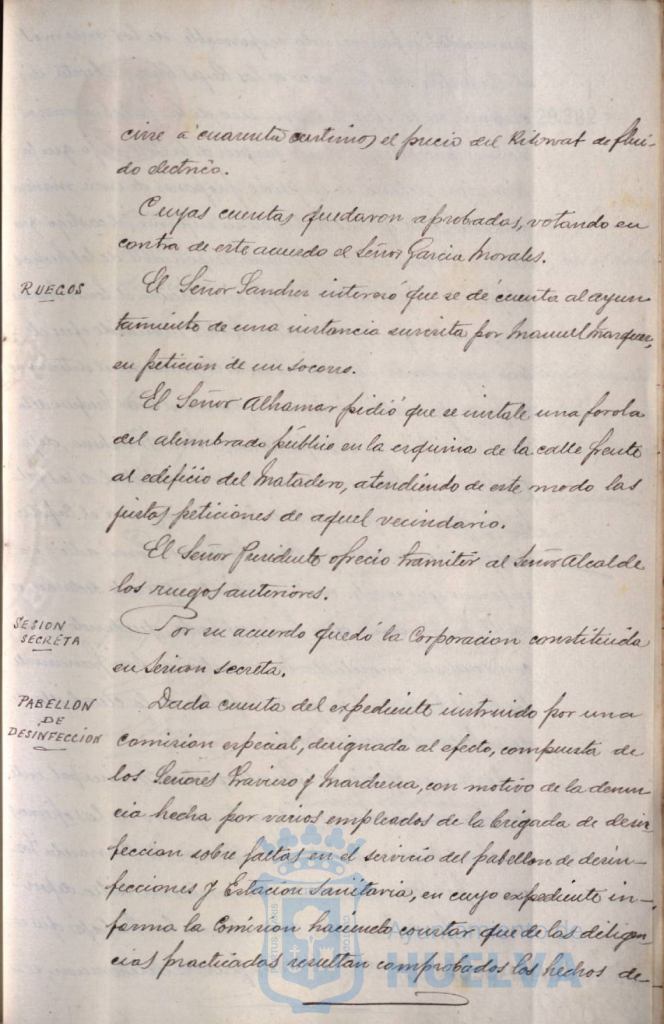 cirse á cuarenta centimos el precio del Kilowat de flui-
do electrico.
Cuyas cuentas quedaron aprobadas, votando en
contra de este acuerdo el Señor Garcia Morales.
RUEGOS
El Señor Sanchez interesó que se dé cuenta al ayun-
tamiento de una instancia suscrita por Manuel Marquez,
en petición de un socorro.
El Señor Alhamar pidió que se instale una farola
del alumbrado público en la esquina de la calle frente
al edificio del Matadero, atendiendo de este modo las
justas peticiones de aquel vecindario.
El Señor Presidente ofrecio tramitir al Señor Alcalde
los ruegos anteriores.
SESION
SECRETA
Por su acuerdo quedó la Corporacion constituida
en Sesion secreta.
PABELLON
DE
DESINFECCION
Dada cuenta del expediente instruido por una
Comision especial, designada al efecto, compuesta de
los Señores Traviero y Mardena, con motivo de la denun-
cia hecha por varios empleados de la brigada de desin-
feccion sobre faltas en el servicio del pabellon de desin-
fecciones y Estacion Sanitaria, en cuyo expediente in-
forma la Comision haciendo constar que de las diligen-
cias practicadas resultan comprobados los hechos de-
Ayuntamiento de
HUELVA